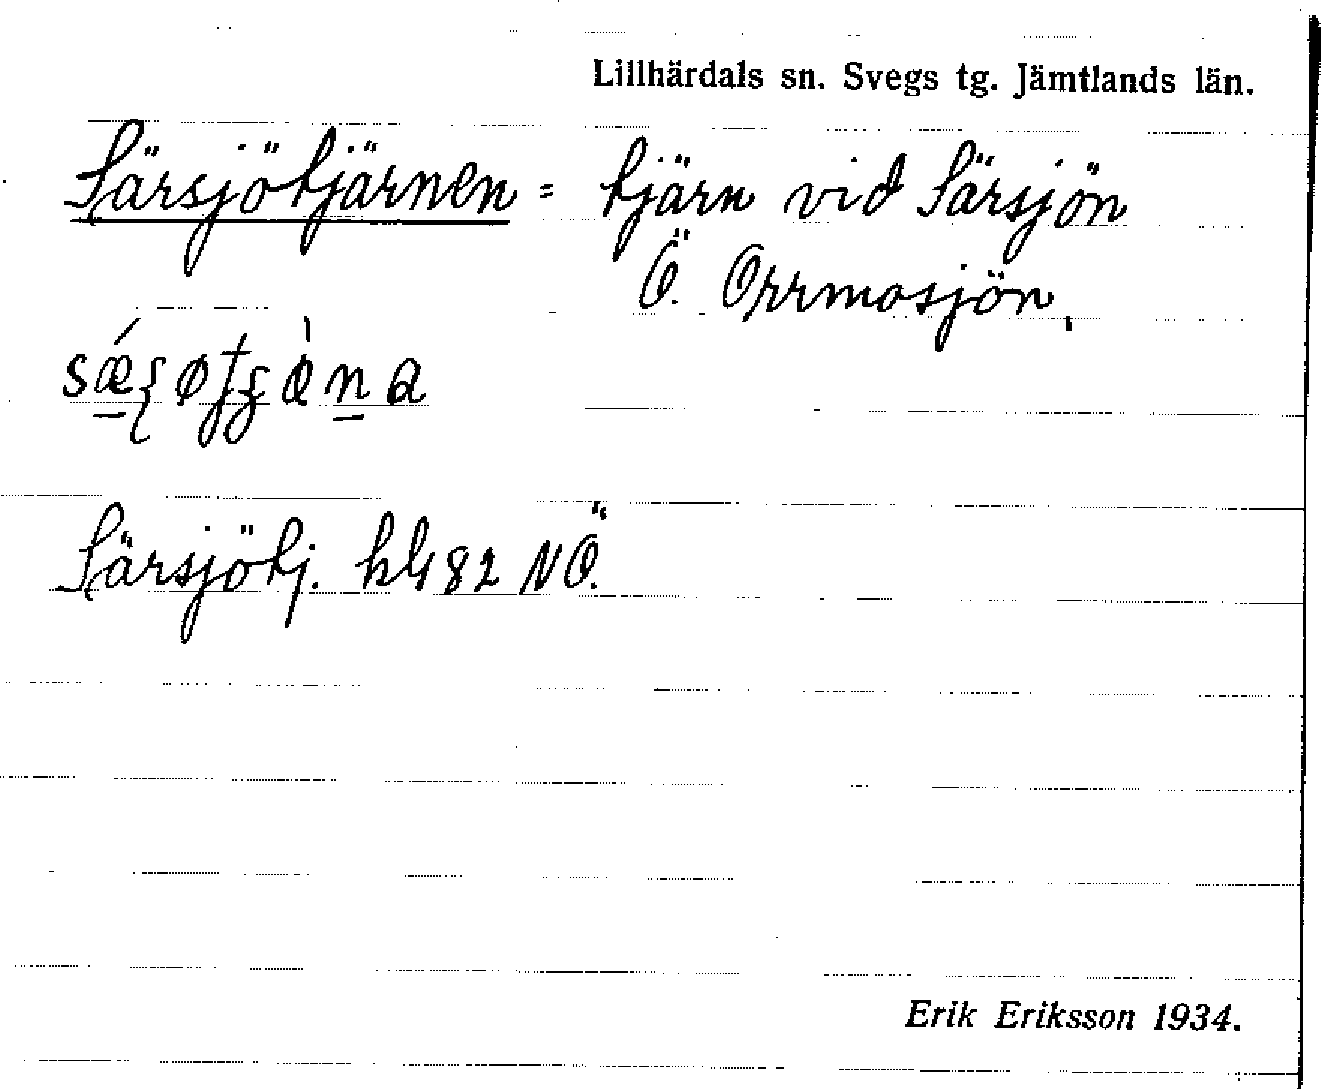 Lillhärdals sn. Svegs tg. Jämtlands län.
Särsjötjärnen = tjärn vid Särsjön
Ö. Orrmosjön.
Särsjötj. kbl 82 NÖ.
Erik Eriksson 1934.